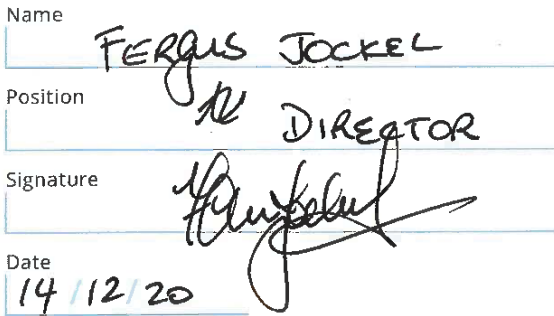 Name
FERGUS JOCKEL
Position
DIRECTOR
Signature
Date
14/12/20